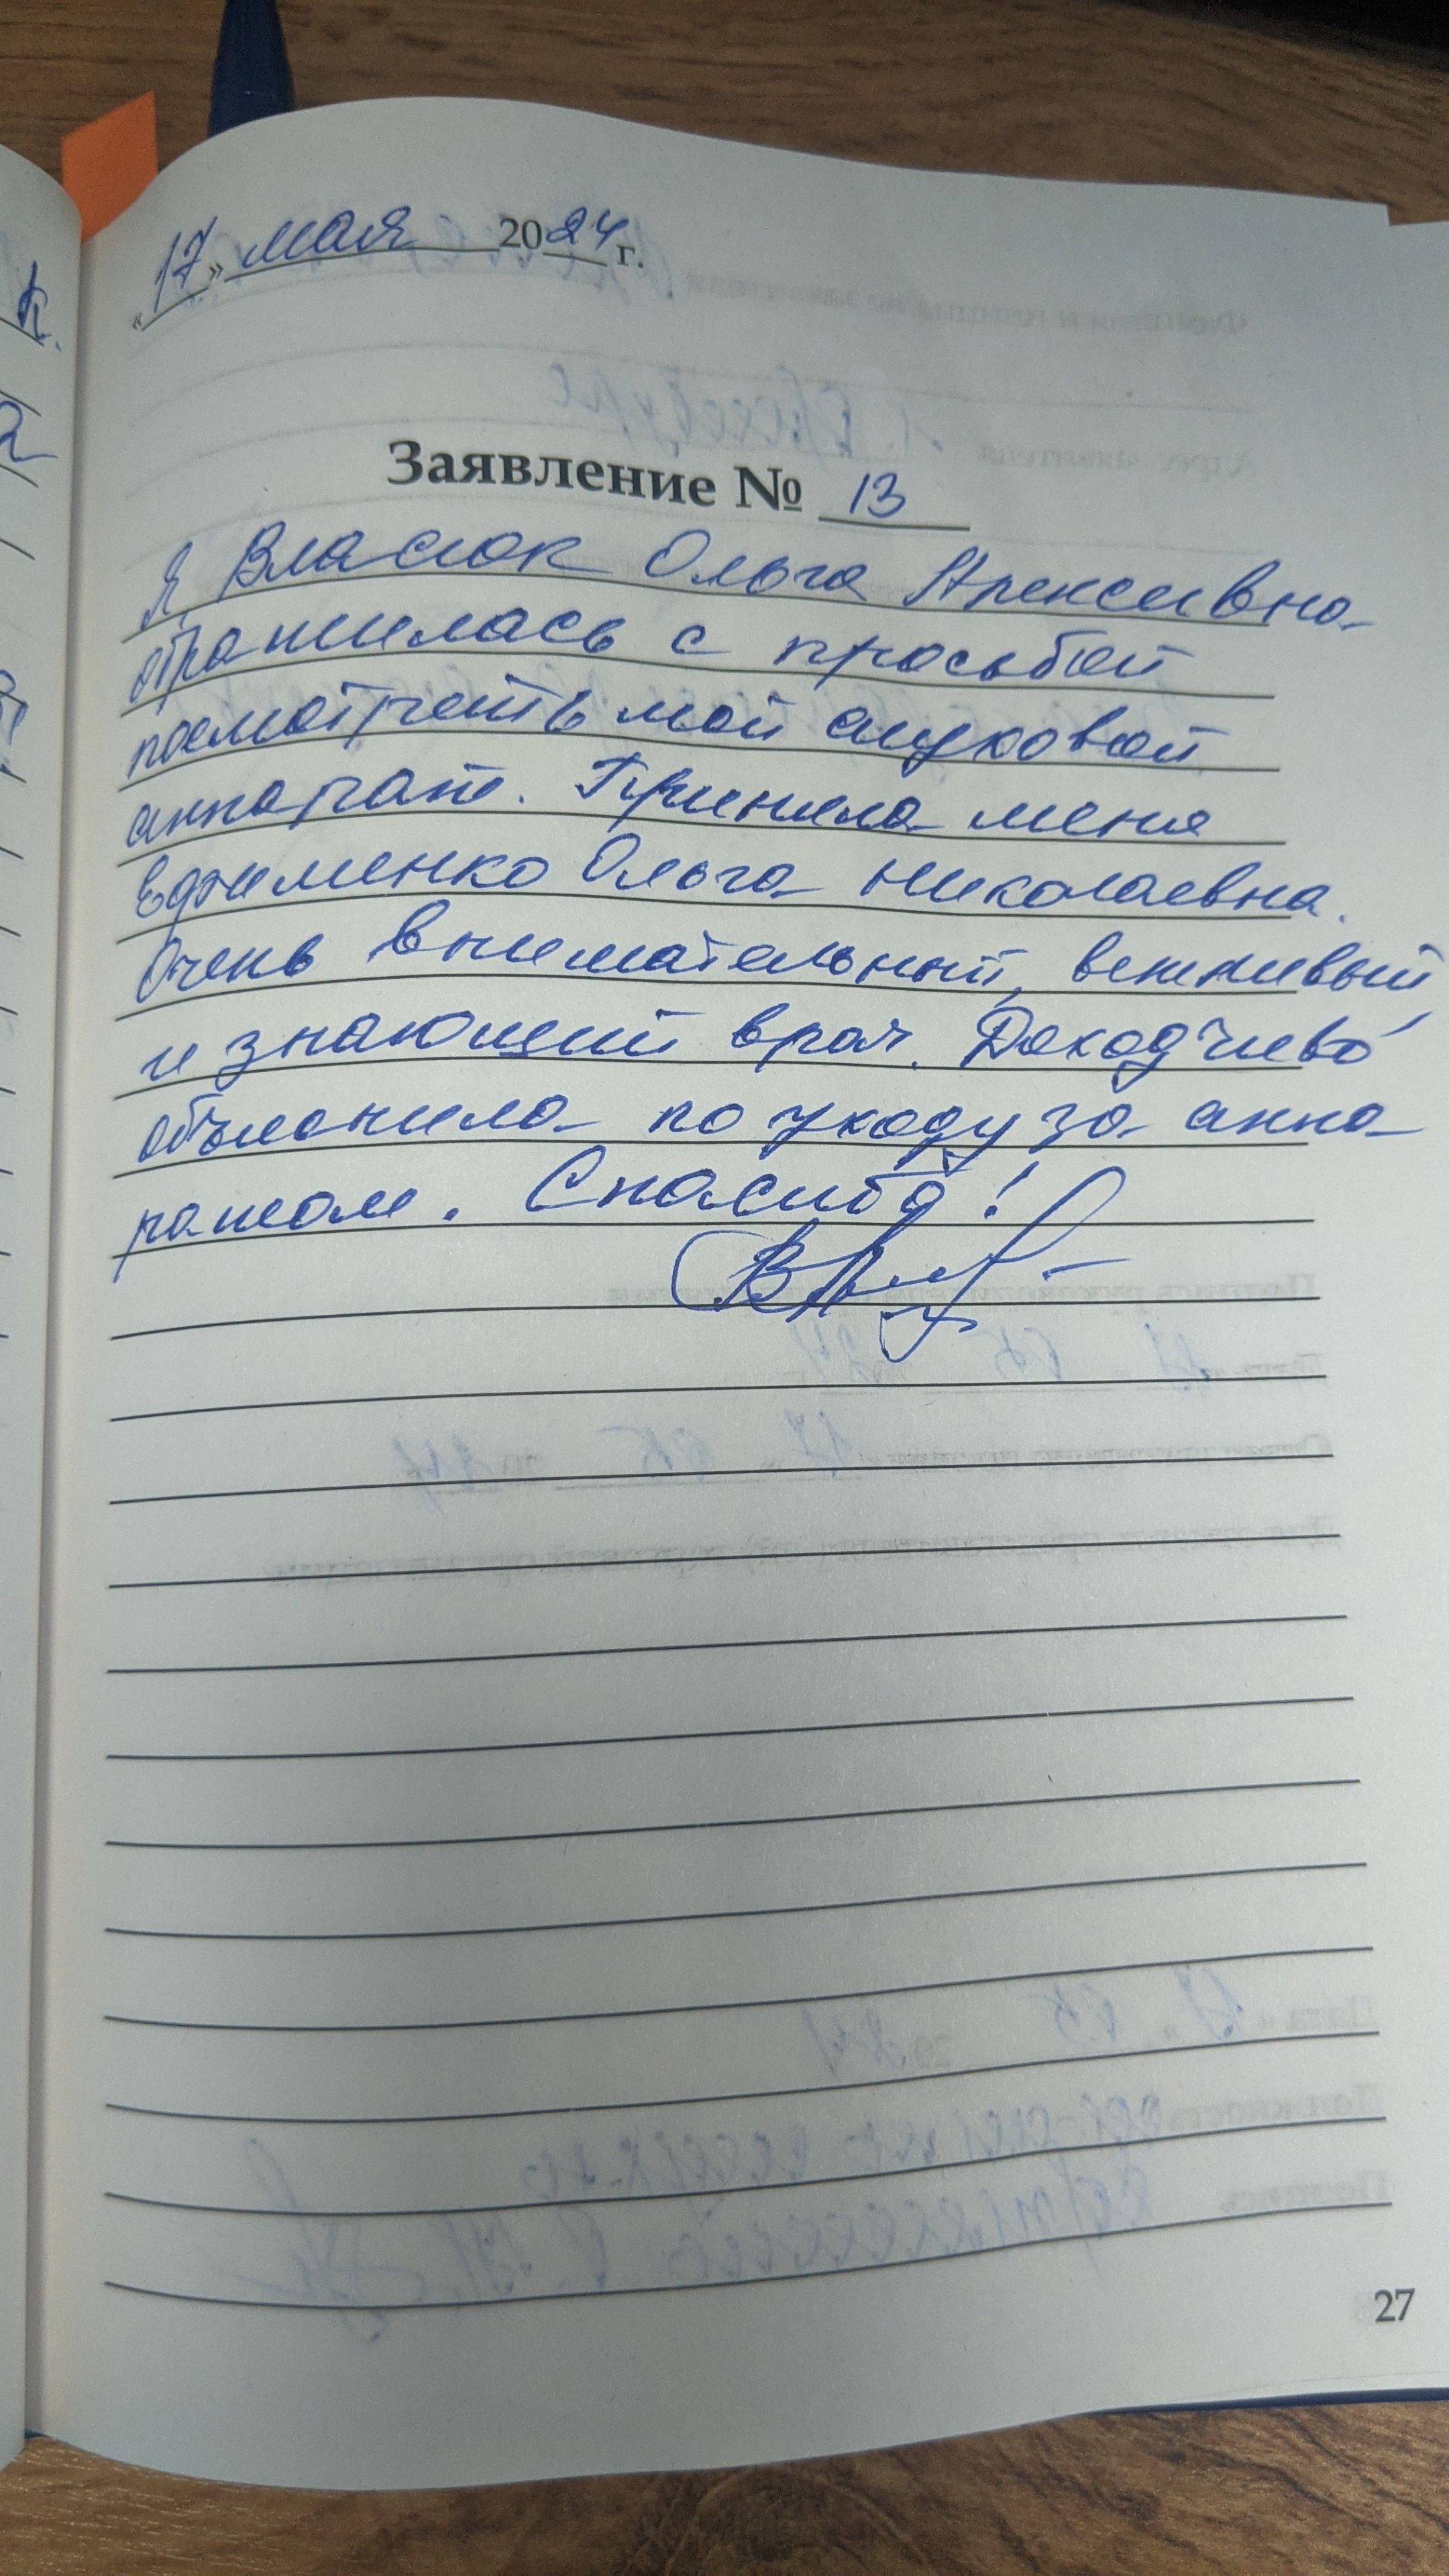 «17» мая 2024 г.
Заявление № 13
Я, Власюк Ольга Алексеевна
обратилась с просьбой
посмотреть мой слуховой
аппарат. Приняла меня
Ефименко Ольга Николаевна.
Очень внимательный, вежливый
и знающий врач. Доходчиво
объяснила по уходу за аппа-
ратом. Спасибо!
27